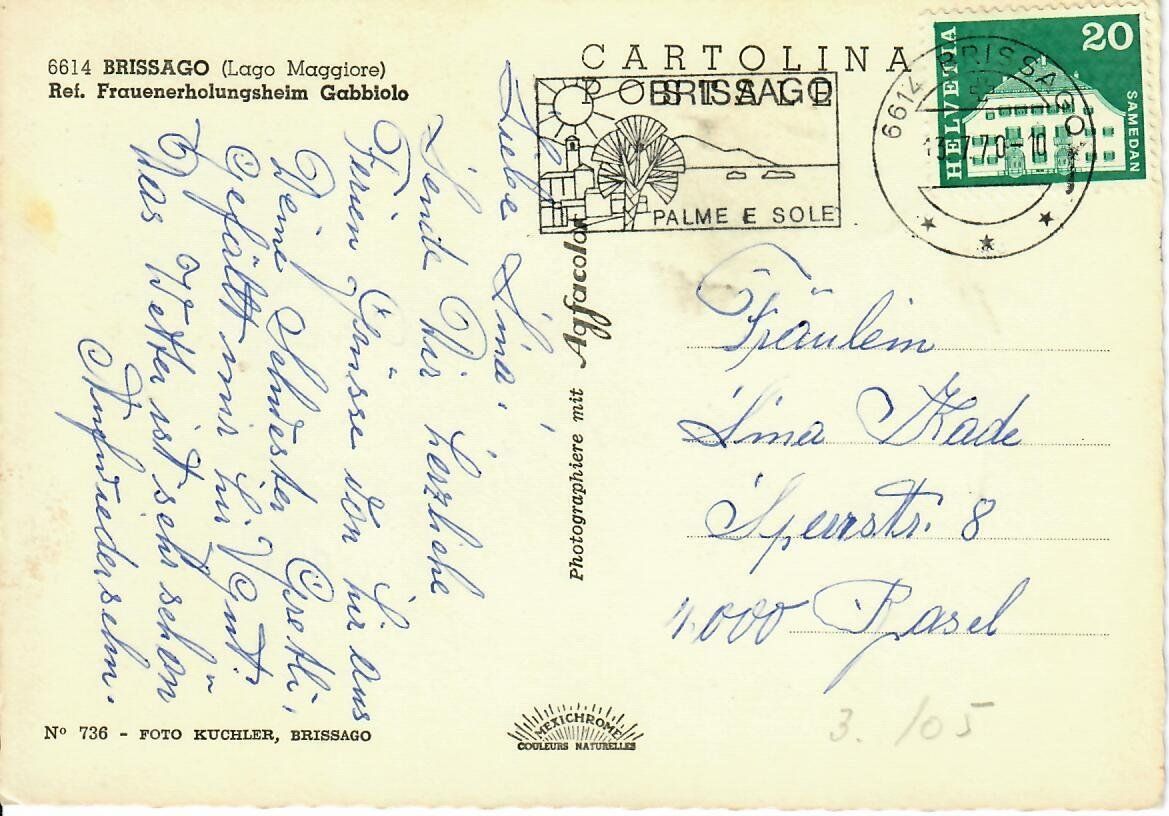 6614 BRISSAGO (Lago Maggiore)
Ref. Frauenerholungsheim Gabbiolo
CARTOLINA
POSTALE
BRISSAGO
PALME E SOLE
6614 BRISSAGO
13. 7.70-10
HELVETIA
20
SAMEDAN
Liebe Lina,
Sende Dir herzliche
Ferien Grüsse von hir aus
Deine Schwester Gretli,
Gefällt mir hir gut.
Das Wetter ist sehr schön
Aufwiedersehn.
Photographiere mit Agfacolor
Fräulein
Lina Kade
Sperrstr. 8
4000 Basel
Nº 736 - FOTO KUCHLER, BRISSAGO
MEXICHROME
COULEURS NATURELLES
3. /05